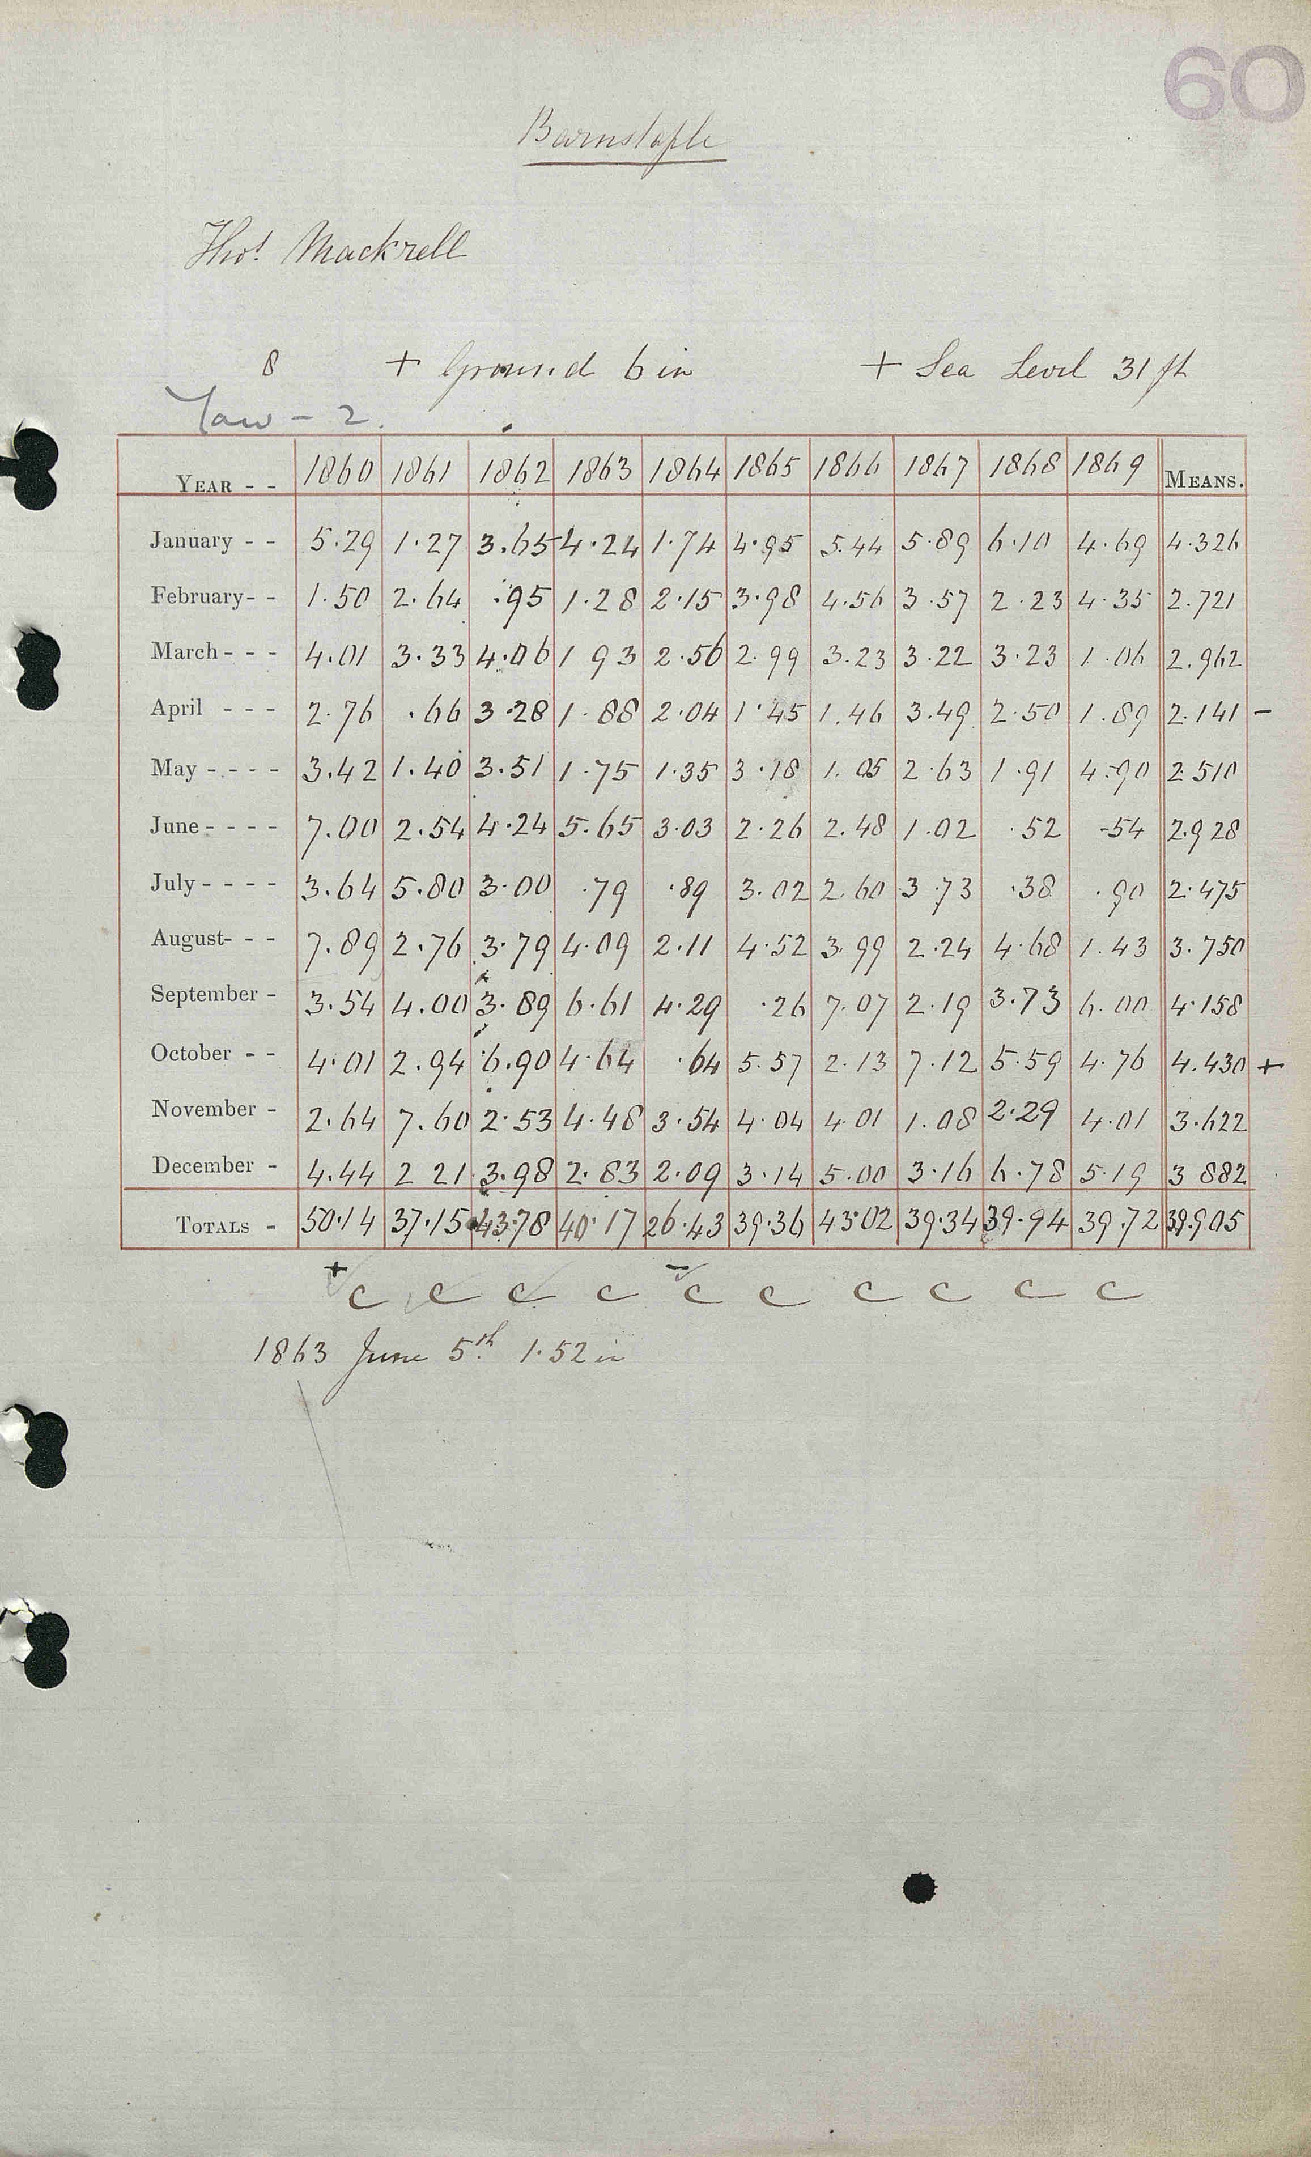 60
Barnstaple
Thos. Mackrell
8 + Ground 6 in + Sea Level 31 ft
Taw - 2.
YEAR - - 1860 1861 1862 1863 1864 1865 1866 1867 1868 1869 MEANS.
January - - 5.29 1.27 3.65 4.24 1.74 4.95 5.44 5.89 6.10 4.69 4.326
February - - 1.50 2.64 .95 1.28 2.15 3.98 4.56 3.57 2.23 4.35 2.721
March - - - 4.01 3.33 4.06 1 93 2.56 2.99 3.23 3.22 3.23 1.06 2.962
April - - - 2.76 .66 3.28 1.88 2.04 1.45 1.46 3.49 2.50 1.89 2.141 -
May - - - - 3.42 1.40 3.51 1.75 1.35 3.18 1.05 2.63 1.91 4.90 2.510
June - - - - 7.00 2.54 4.24 5.65 3.03 2.26 2.48 1.02 .52 .54 2.928
July - - - - 3.64 5.80 3.00 .79 .89 3.02 2.60 3.73 .38 .90 2.475
August - - - 7.89 2.76 3.79 4.09 2.11 4.52 3.99 2.24 4.68 1.43 3.750
September - 3.54 4.00 3.89 6.61 4.29 .26 7.07 2.19 3.73 6.00 4.158
October - - 4.01 2.94 6.90 4.64 .64 5.57 2.13 7.12 5.59 4.76 4.430 +
November - 2.64 7.60 2.53 4.48 3.54 4.04 4.01 1.08 2.29 4.01 3.622
December - 4.44 2 21 3.98 2.83 2.09 3.14 5.00 3.16 6.78 5.19 3 882
TOTALS - 50.14 37.15 43.78 40.17 26.43 39.36 43.02 39.34 39.94 39.72 39.905
+ -
c c c c c c c c c c
1863 June 5th 1.52 in